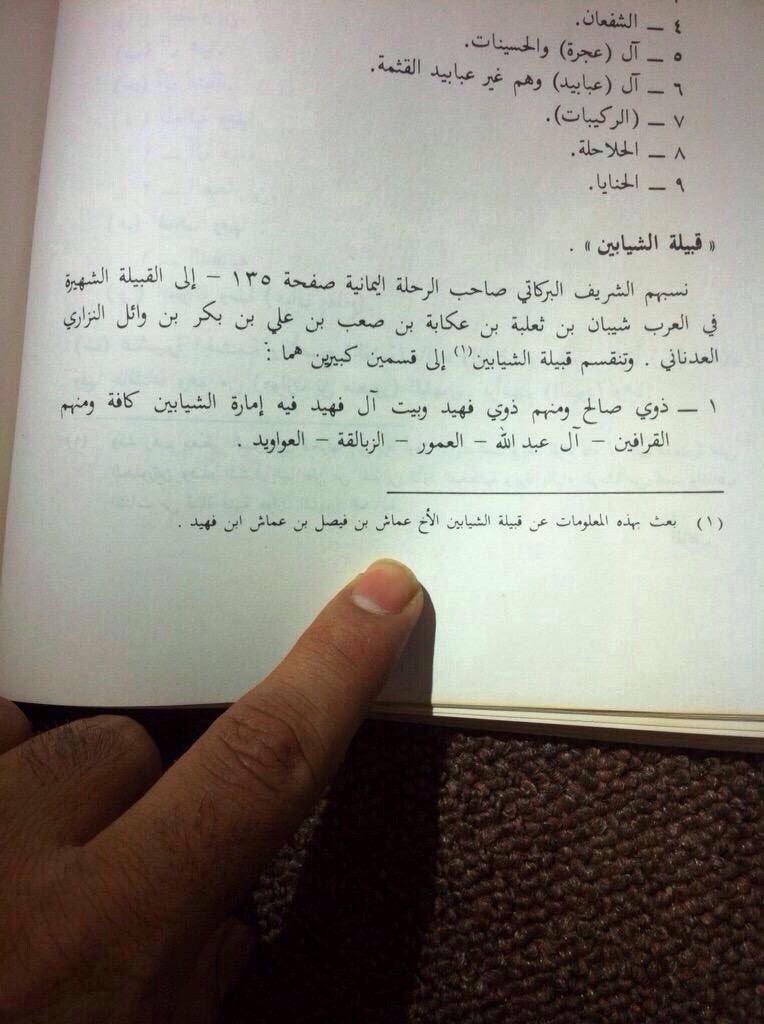 ٤ ــ الشفعان.
٥ ــ آل (عجرة) والحسينات.
٦ ــ آل (عبابيد) وهم غير عبابيد القثمة.
٧ ــ (الركيبات).
٨ ــ الحلاحلة.
٩ ــ الحنايا.
« قبيلة الشيابين » .
نسبهم الشريف البركاتي صاحب الرحلة اليمانية صفحة ١٣٥ – إلى القبيلة الشهيرة
في العرب شيبان بن ثعلبة بن عكابة بن صعب بن علي بن بكر بن وائل النزاري
العدناني . وتنقسم قبيلة الشيابين(١) إلى قسمين كبيرين هما :
١ ــ ذوي صالح ومنهم ذوي فهيد وبيت آل فهيد فيه إمارة الشيابين كافة ومنهم
القرافين – آل عبد الله – العمور – الزبالقة – العواويد .
(١) بعث بهذه المعلومات عن قبيلة الشيابين الأخ عماش بن فيصل بن عماش ابن فهيد .